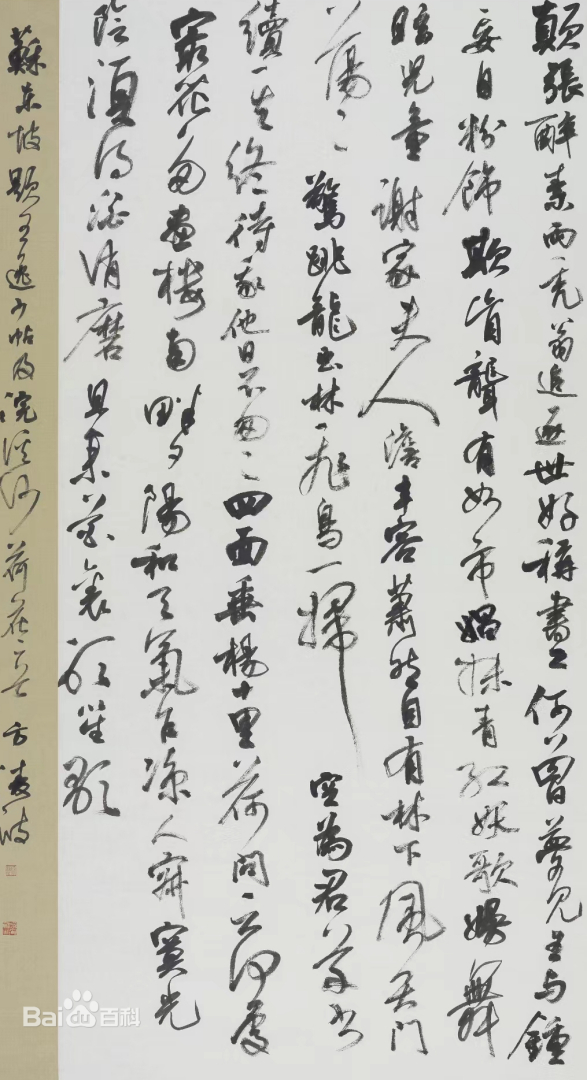 顛張醉素兩禿翁追逐世好稱書工何曾夢見王与鍾
妄自粉飾欺盲聾有如市娼抹青紅妖歌嫚舞
眩兒童謝家夫人澹丰容蕭然自有林下風天門
蕩々驚跳龍出林飛鳥一掃空為君草書
續其終待我他日不匆々四面垂楊十里荷問云何處
最花多畫樓南畔夕陽和天氣乍涼人寂寞光
陰須得酒消磨且來花裏聽笙歌
蘇东坡題王逸少帖及浣溪沙荷花
Bai百科